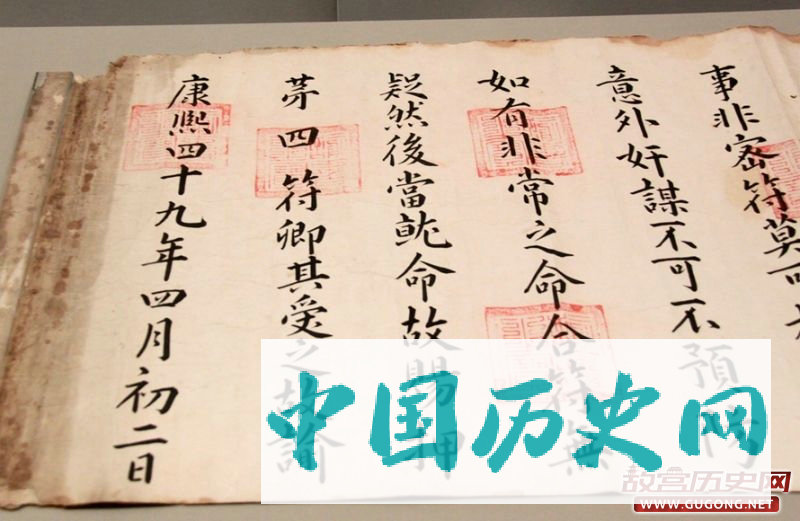 事非密符莫可
意外奸謀不可不預防
如有非常之命合符無
疑然後當就命故賜押
苐四符卿其受之故諭
康熙四十九年四月初二日
中国历史网
故宫历史网
WWW.GUGONG.NET